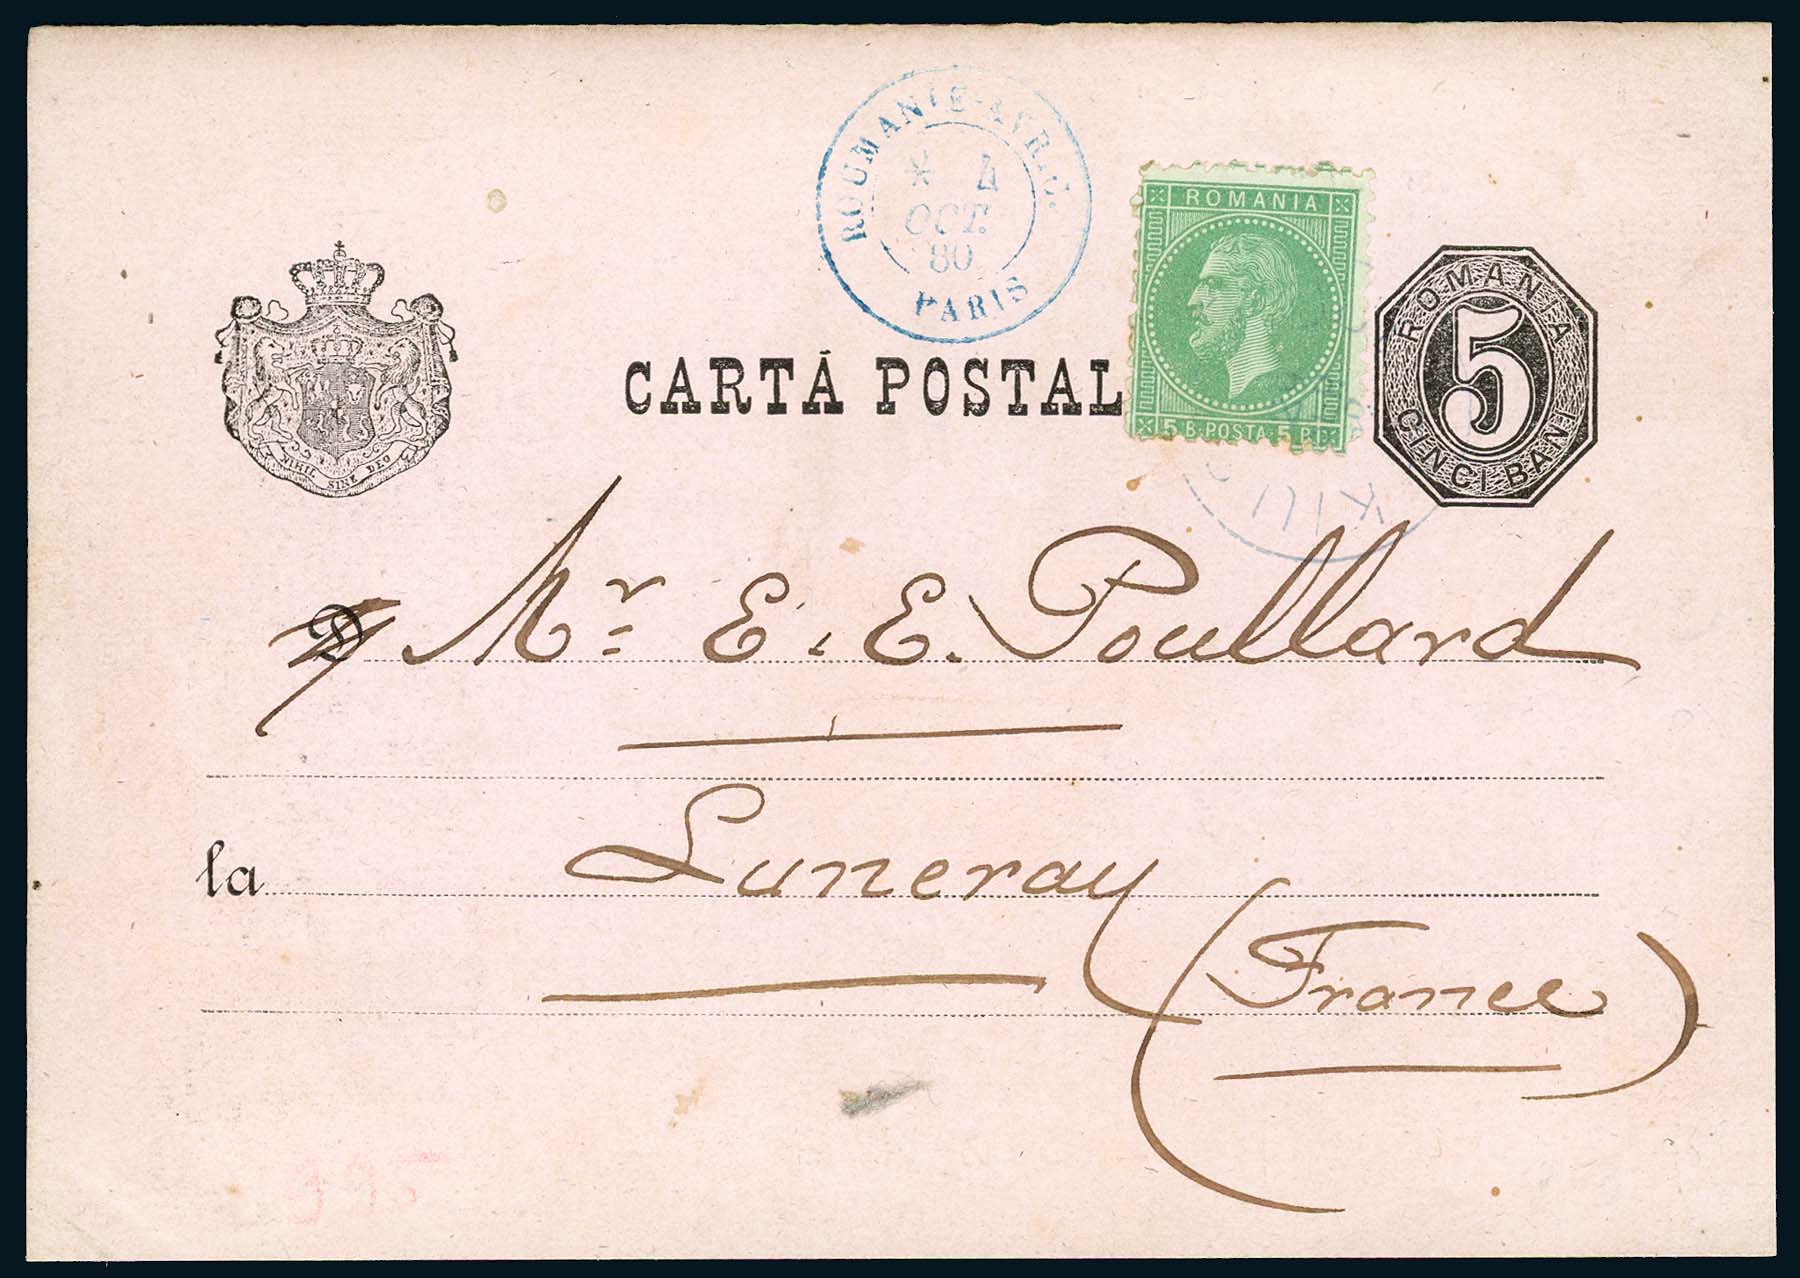 ROUMANIE-AVRIC.
4
OCT.
80
PARIS
ROMANIA
5 B. POSTA 5 B.
ROMANIA
5
CINCI BANI
NIHIL SINE DEO
CARTĂ POSTAL
KILI
D
Mr E. E. Poullard
la Luneray
(France)